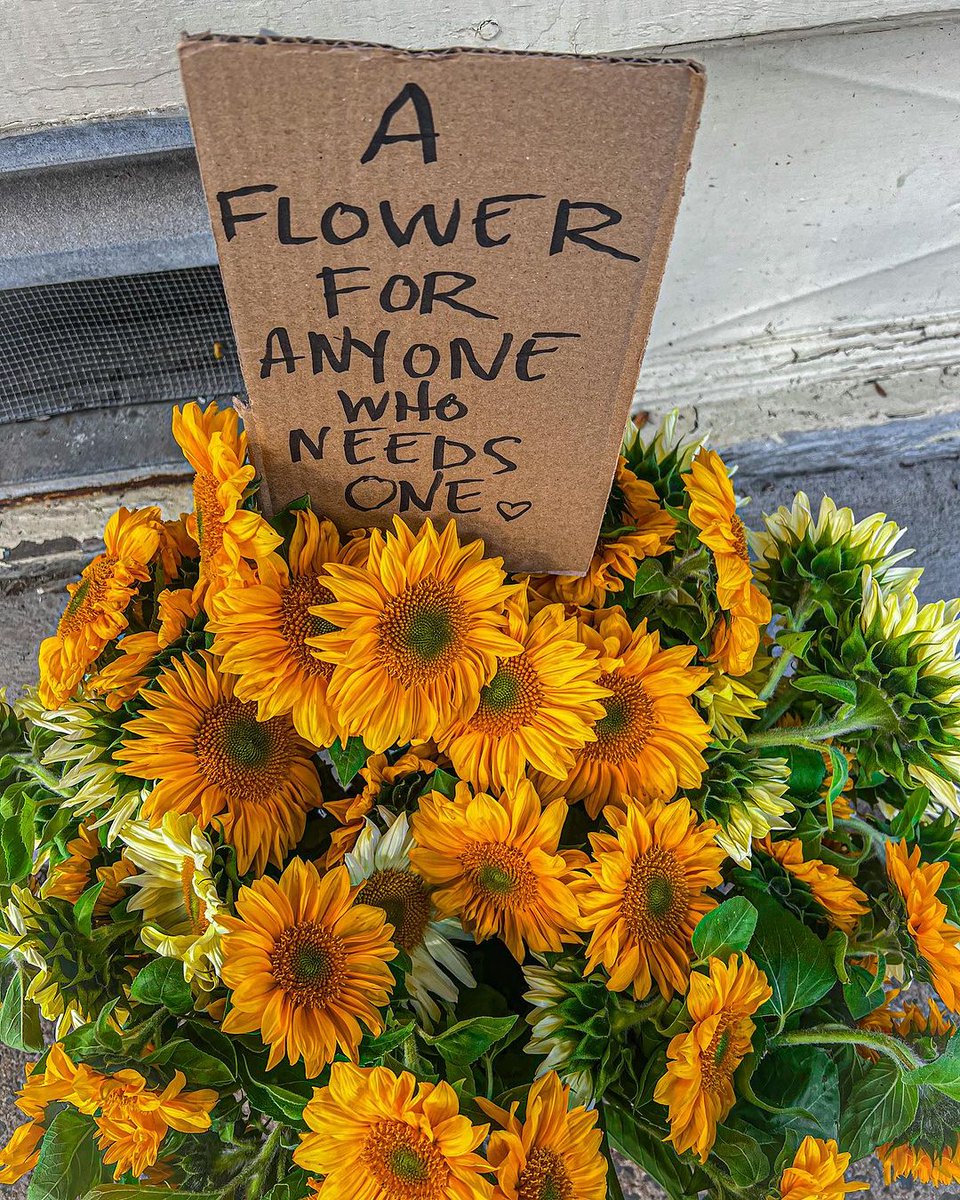 A
FLOWER
FOR
ANYONE
WHO
NEEDS
ONE. ♡